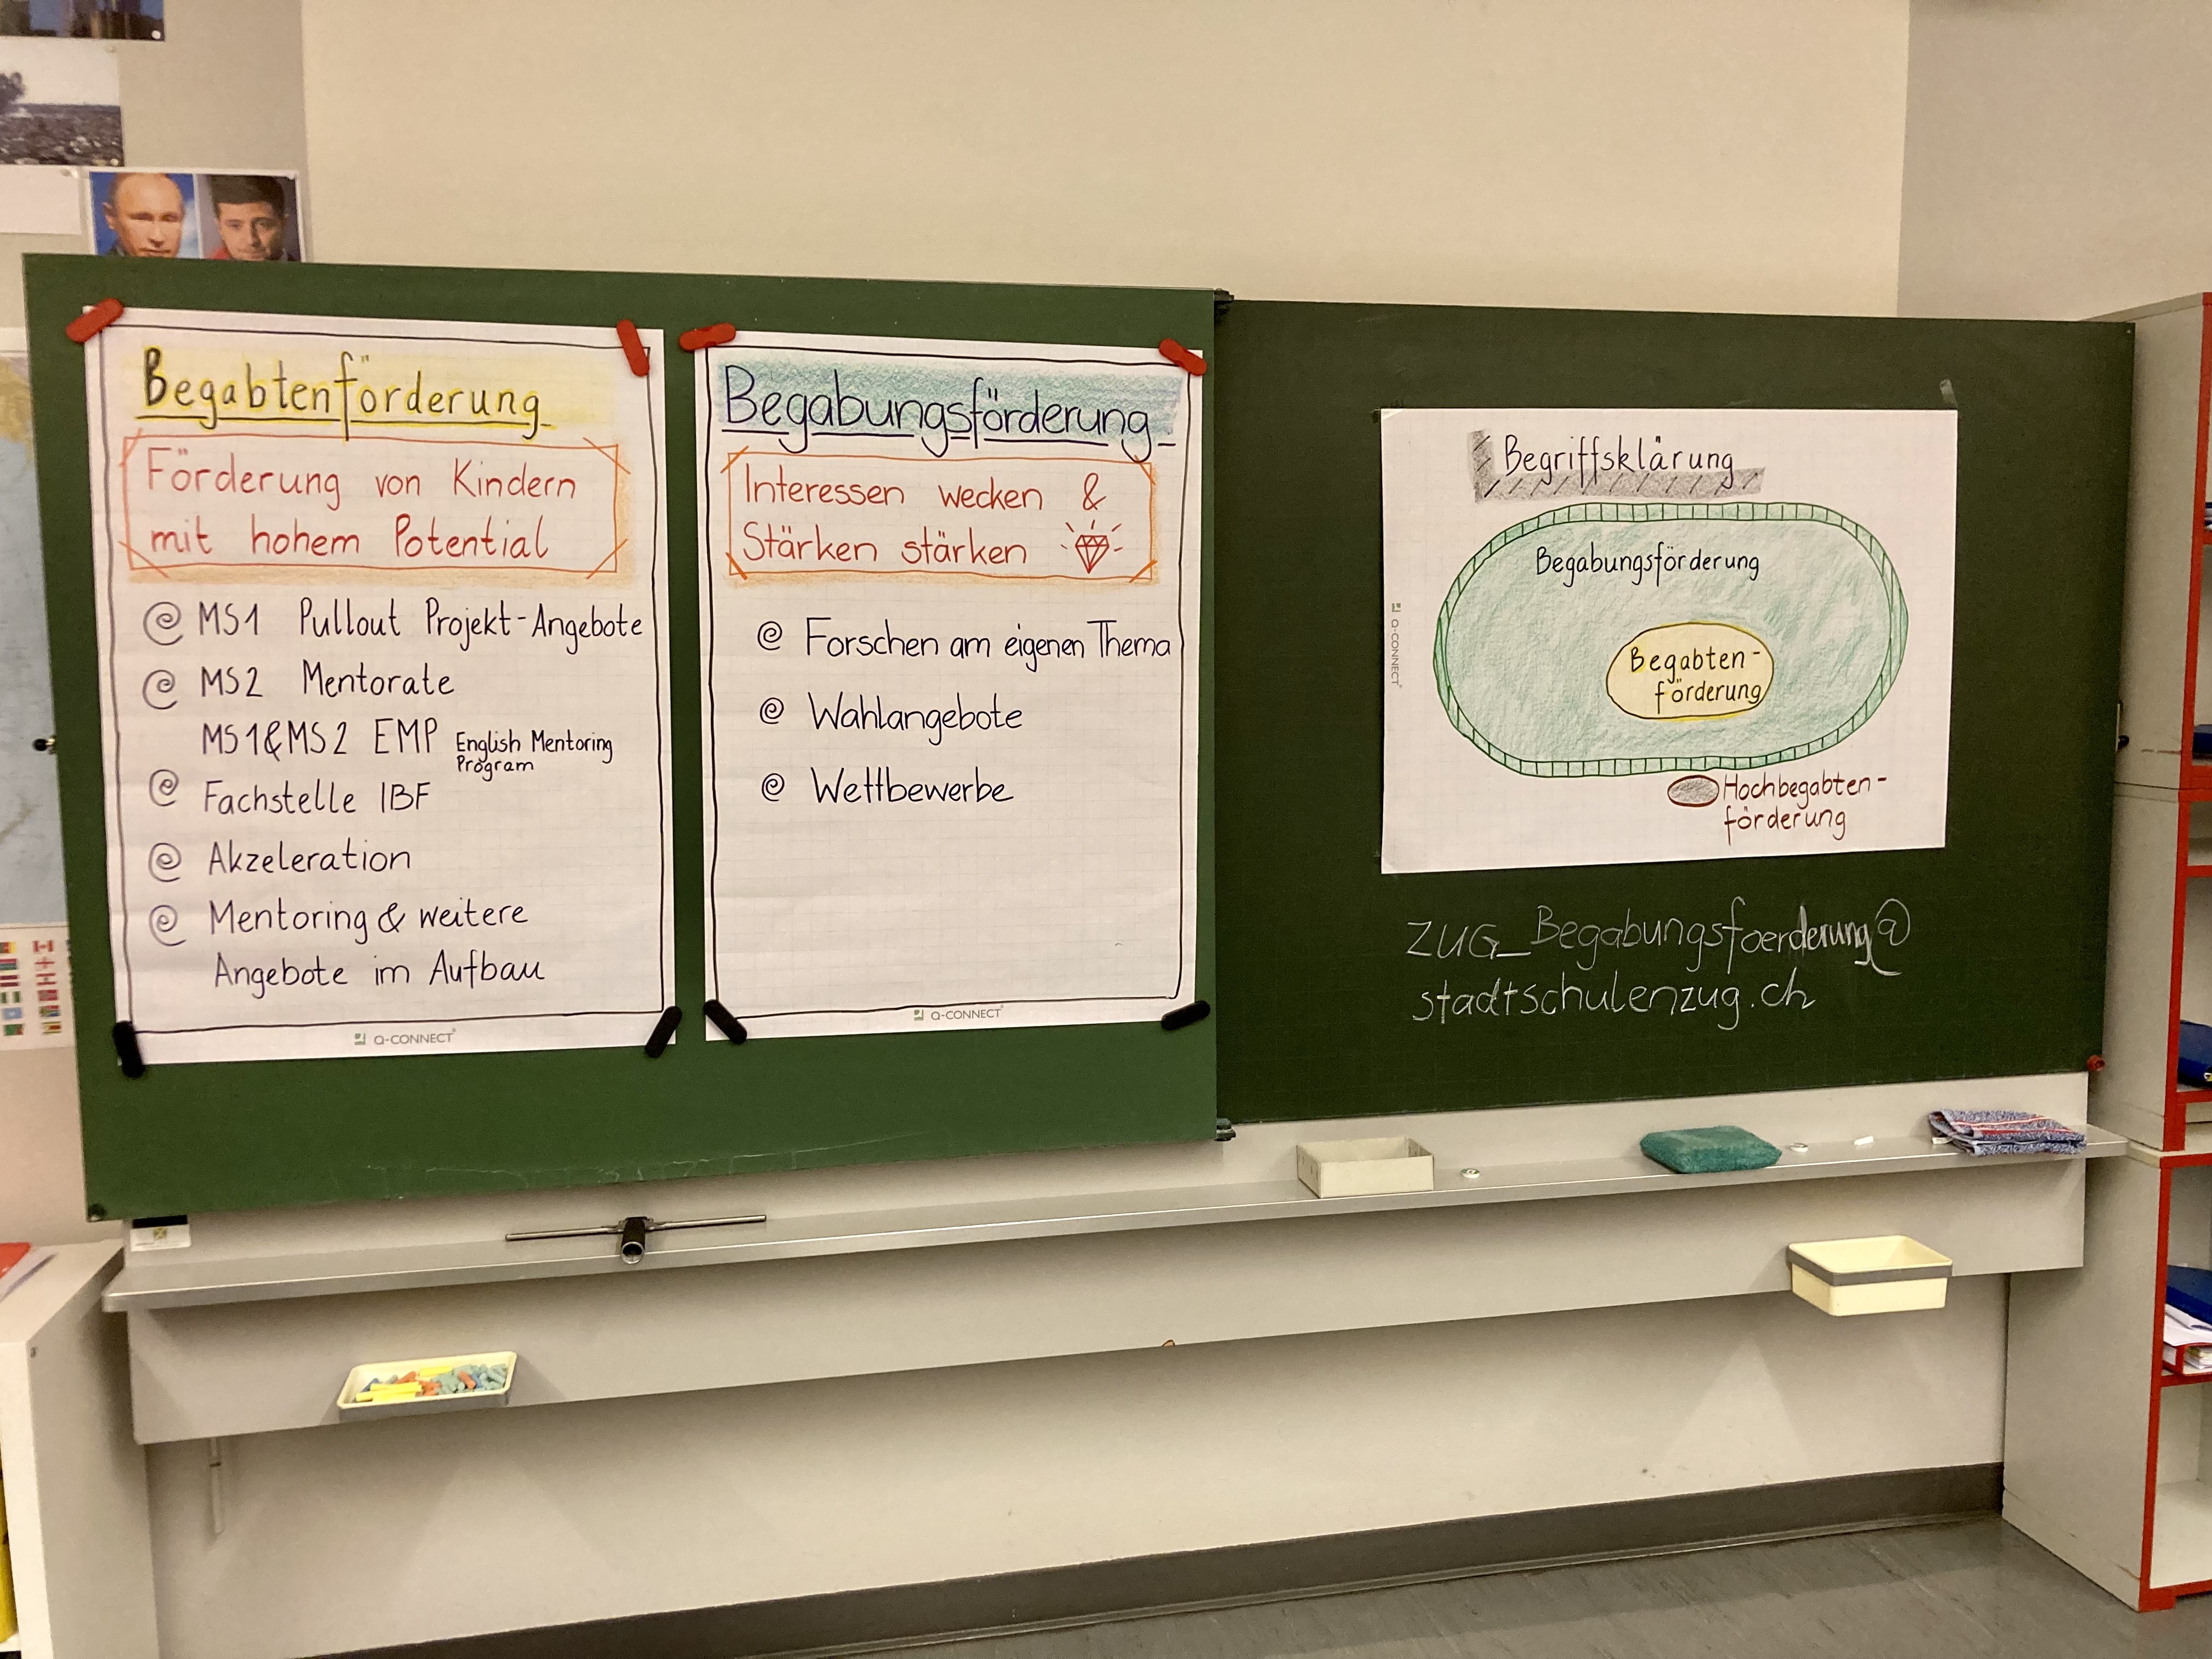 Begabtenförderung
Förderung von Kindern
mit hohem Potential
@ MS1 Pullout Projekt-Angebote
@ MS2 Mentorate
MS1&MS2 EMP English Mentoring
Program
@ Fachstelle IBF
@ Akzeleration
@ Mentoring & weitere
Angebote im Aufbau
Q-CONNECT
Begabungsförderung
Interessen wecken &
Stärken stärken
@ Forschen am eigenen Thema
@ Wahlangebote
@ Wettbewerbe
Q-CONNECT
Begriffsklärung
Begabungsförderung
Begabten-
förderung
Hochbegabten-
förderung
Q-CONNECT
ZUG_Begabungsfoerderung@
stadtschulenzug.ch